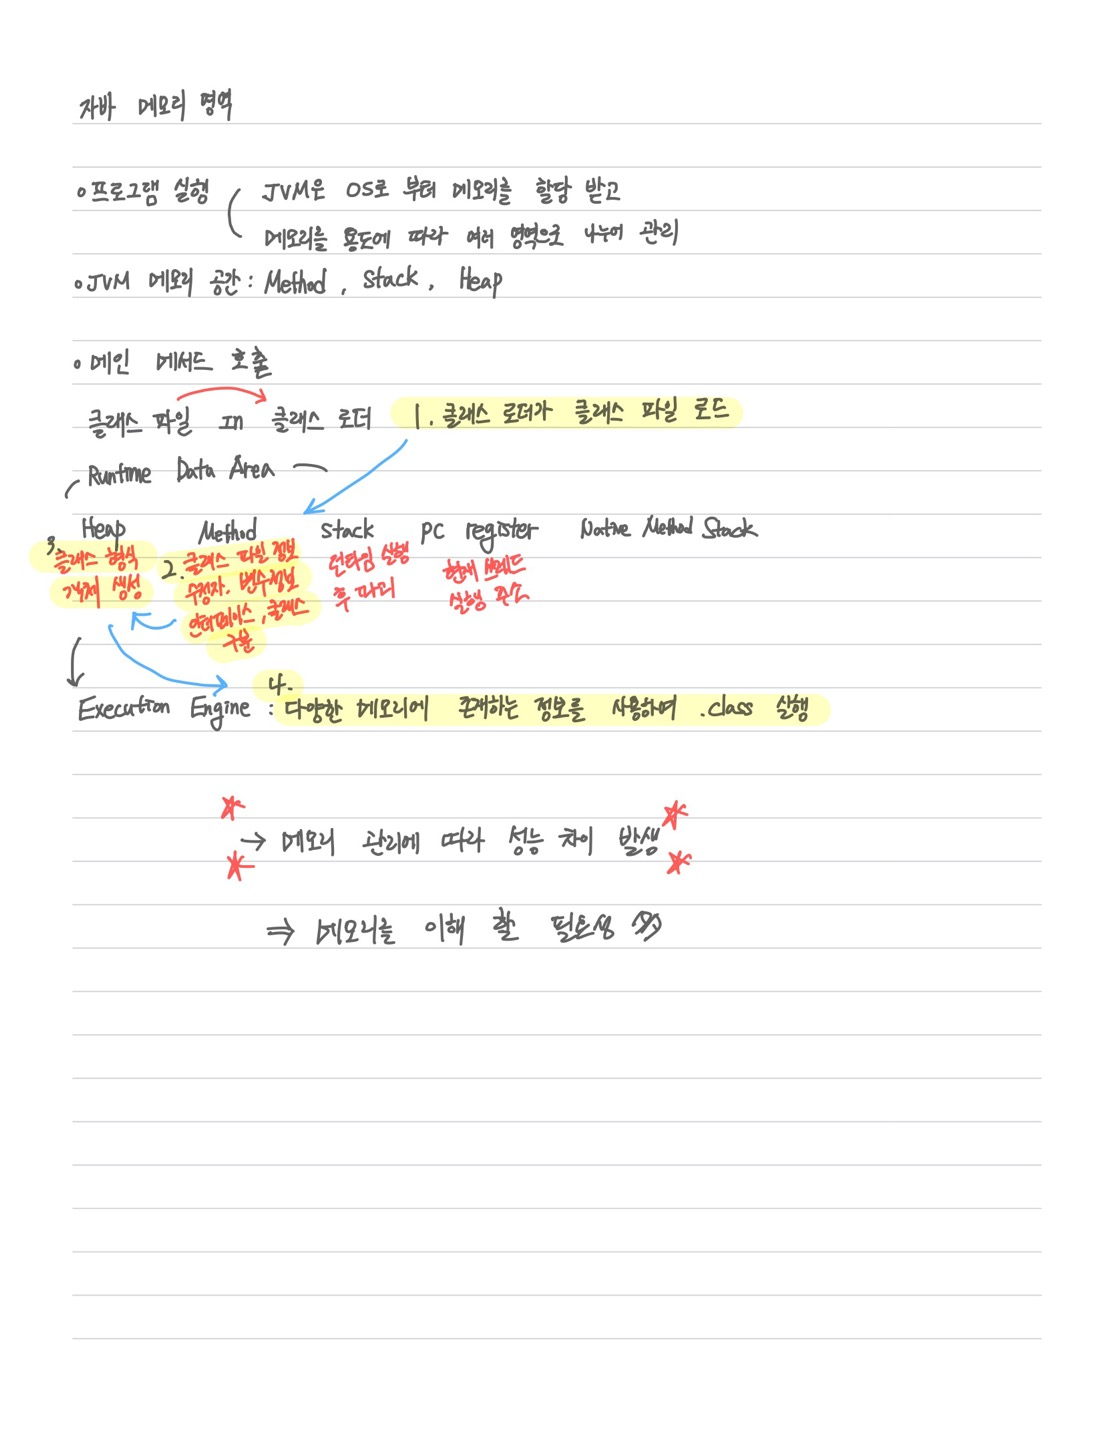 자바 메모리 영역
◦프로그램 실행 JVM은 OS로 부터 메모리를 할당 받고
메모리를 용도에 따라 여러 영역으로 나누어 관리
◦JVM 메모리 공간 : Method, Stack, Heap
◦메인 메서드 호출
클래스 파일 In 클래스 로더 1. 클래스 로더가 클래스 파일 로드
Runtime Data Area
Heap Method Stack PC register Native Method Stack
3. 클래스 형식 2. 클래스 파일 정보 런타임 실행 현재 쓰레드
객체 생성 수정자. 변수정보 후 파괴 실행 주소
인터페이스, 클래스
구분
4.
Execution Engine : 다양한 메모리에 존재하는 정보를 사용하여 .class 실행
→ 메모리 관리에 따라 성능 차이 발생
⇒ 메모리를 이해 할 필요성